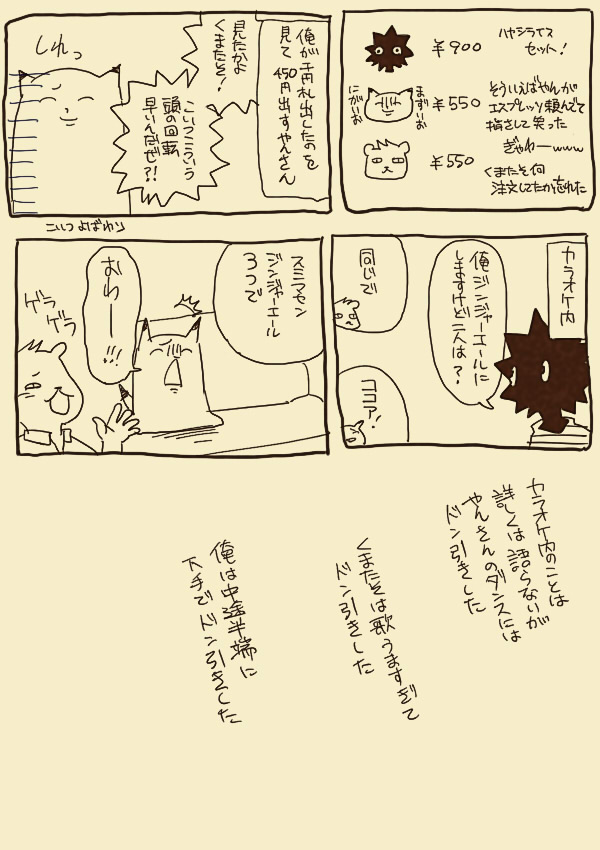 ハヤシライス
セット!
¥900
¥550
まずいお
にがいお
そういえばやんが
エスプレッソ頼んでて
指さして笑った
ぎゃわーwww
¥550
くまたそ何
注文してたか忘れた
俺が千円札出したのを
見て450円出すやんさん
見たかよ
くまたそ!
こいつこういう
頭の回転
早いんだぜ?!
しれっ
こいつよばわり
カラオケ内
俺ジンジャーエールに
しますけど二人は?
同じで
ココア!
スミマセン
ジンジャーエール
3つで
おわー!!!
ゲラ
ゲラ
カラオケ内のことは
詳しくは語らないが
やんさんのダンスには
ドン引きした
くまたそは歌うますぎて
ドン引きした
俺は中途半端に
下手でドン引きした